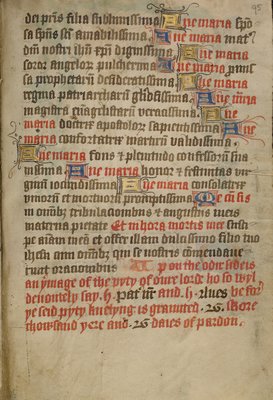 95
dei pris filia sublimissima Aue maria spō
sa spūs sēi amabilissima Aue maria mat'
dm̄ nostri ihū xp̄i dignissima Aue maria
soror angelor̄ pulcherima Aue maria
sa prophetarū desideratissima Aue maria
regina patriarcharū gl̄osissima Aue maria
magistra euāgelistarū veracissima Aue
maria doctrix apostolor̄ sapientissima Aue
maria confortatrix martirū validissima
Aue maria fons & plenitudo confessorū sua
uissima Aue maria honor & festiuitas vir
ginū iocundissima Aue maria consolatrix
viuorū et mortuorū promptissima Me cū sis
in oīnibȝ tribulacionibus & angustiis meis
materna pietate Et in hora mortis mee susci
pe aīam meā et offer illam dulcissimo filio tuo
ihesu cum oīnibȝ qui se nostris comendaue
runt oracionibus Apon the oūr side is
an ymage of the pyty of oure lord ho so wyl
deuoutely say .v. pat' nr̄ and .v. Aues be for
ye seid pyty knelyng is graunted
thowsand yere and daies of pardon.